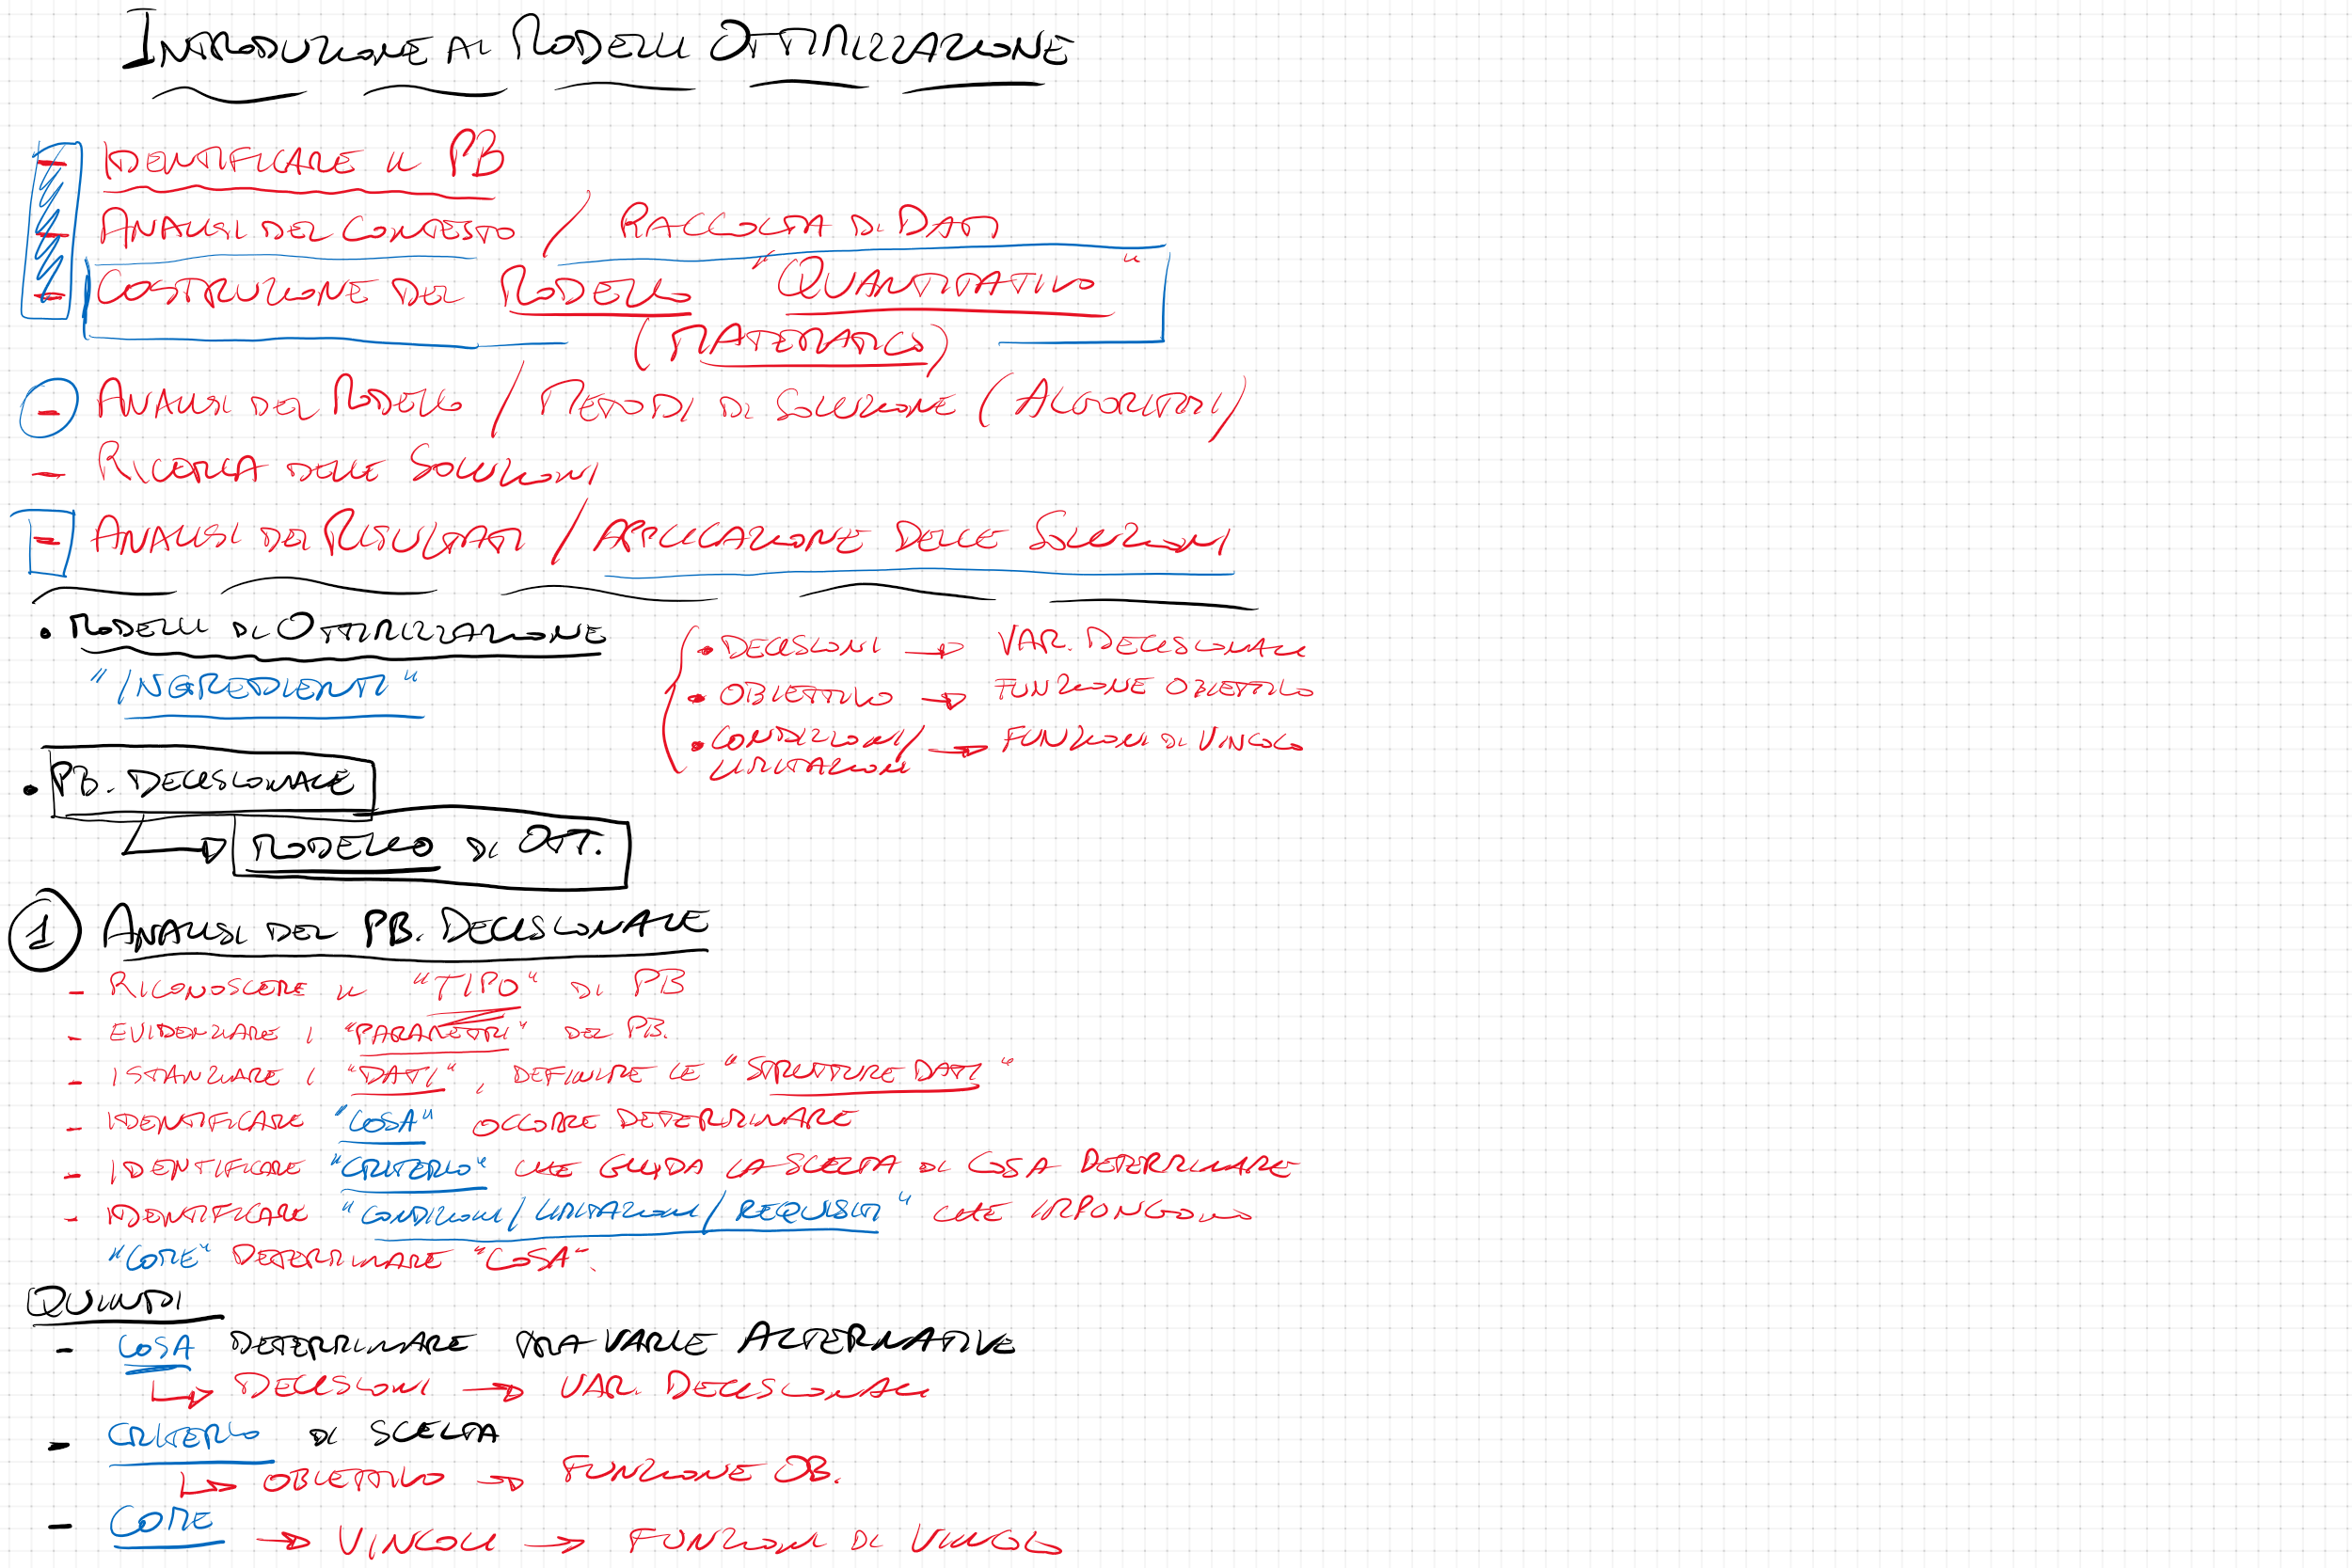 INTRODUZIONE AI MODELLI OTTIMIZZAZIONE
- IDENTIFICARE IL PB
- ANALISI DEL CONTESTO / RACCOLTA DI DATI
- COSTRUZIONE DEL MODELLO "QUANTITATIVO"
(MATEMATICO)
- ANALISI DEL MODELLO / METODI DI SOLUZIONE (ALGORITMI)
- RICERCA DELLE SOLUZIONI
- ANALISI DEI RISULTATI / APPLICAZIONE DELLE SOLUZIONI
• MODELLI DI OTTIMIZZAZIONE
"INGREDIENTI"
• DECISIONI → VAR. DECISIONALI
• OBIETTIVO → FUNZIONE OBIETTIVO
• CONDIZIONI/ → FUNZIONI DI VINCOLO
LIMITAZIONI
• PB. DECISIONALE
→ MODELLO DI OTT.
1 ANALISI DEL PB. DECISIONALE
- RICONOSCERE IL "TIPO" DI PB
- EVIDENZIARE I "PARAMETRI" DEL PB.
- ISTANZIARE I "DATI", DEFINIRE LE "STRUTTURE DATI"
- IDENTIFICARE "COSA" OCCORRE DETERMINARE
- IDENTIFICARE "CRITERIO" CHE GUIDA LA SCELTA DI COSA DETERMINARE
- IDENTIFICARE "CONDIZIONI / LIMITAZIONI / REQUISITI" CHE IMPONGONO
"COME" DETERMINARE "COSA".
QUINDI
- COSA DETERMINARE TRA VARIE ALTERNATIVE
→ DECISIONI → VAR. DECISIONALI
- CRITERIO DI SCELTA
→ OBIETTIVO → FUNZIONE OB.
- COME → VINCOLI → FUNZIONI DI VINCOLO